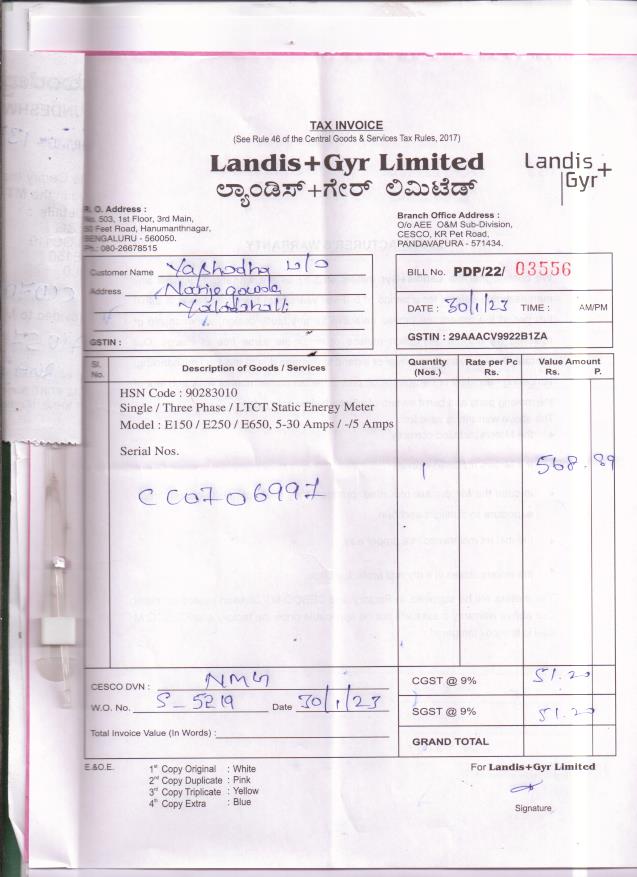 TAX INVOICE
(See Rule 46 of the Central Goods & Services Tax Rules, 2017)
Landis+Gyr Limited
ಲ್ಯಾಂಡಿಸ್+ಗೇರ್ ಲಿಮಿಟೆಡ್
Landis+
Gyr
R. O. Address :
No. 503, 1st Floor, 3rd Main,
80 Feet Road, Hanumanthnagar,
BENGALURU - 560050.
Ph.: 080-26678515
Branch Office Address :
O/o AEE O&M Sub-Division,
CESCO, KR Pet Road,
PANDAVAPURA - 571434.
Customer Name Yashodha w/o
Address Nanjegowda
Yaladahalli
GSTIN :
BILL No. PDP/22/ 03556
DATE : 30/1/23 TIME : AM/PM
GSTIN : 29AAACV9922B1ZA
Sl. No. Description of Goods / Services Quantity (Nos.) Rate per Pc Rs. Value Amount Rs. P.
HSN Code : 90283010
Single / Three Phase / LTCT Static Energy Meter
Model : E150 / E250 / E650, 5-30 Amps / -/5 Amps
Serial Nos.
1 568.89
CC0706997
CESCO DVN : NMG
W.O. No. S-5219 Date 30/1/23
Total Invoice Value (In Words) :
CGST @ 9% 51.20
SGST @ 9% 51.20
GRAND TOTAL
E.&O.E.
1st Copy Original : White
2nd Copy Duplicate : Pink
3rd Copy Triplicate : Yellow
4th Copy Extra : Blue
For Landis+Gyr Limited
Signature